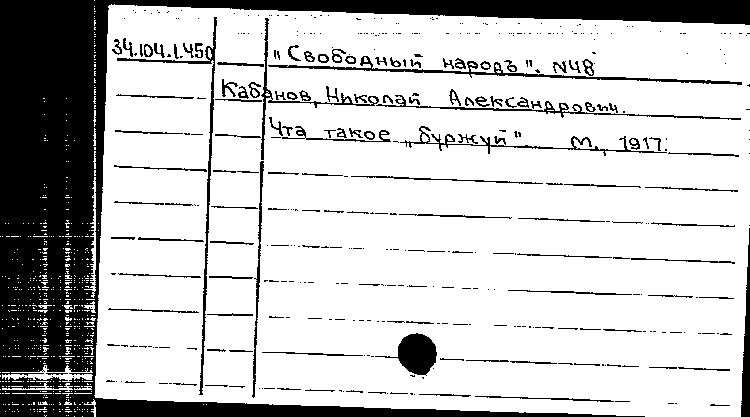 34.104.1.450 "Свободный народъ". N48
Кабанов, Николай Александрович.
Что такое "буржуй". М., 1917.